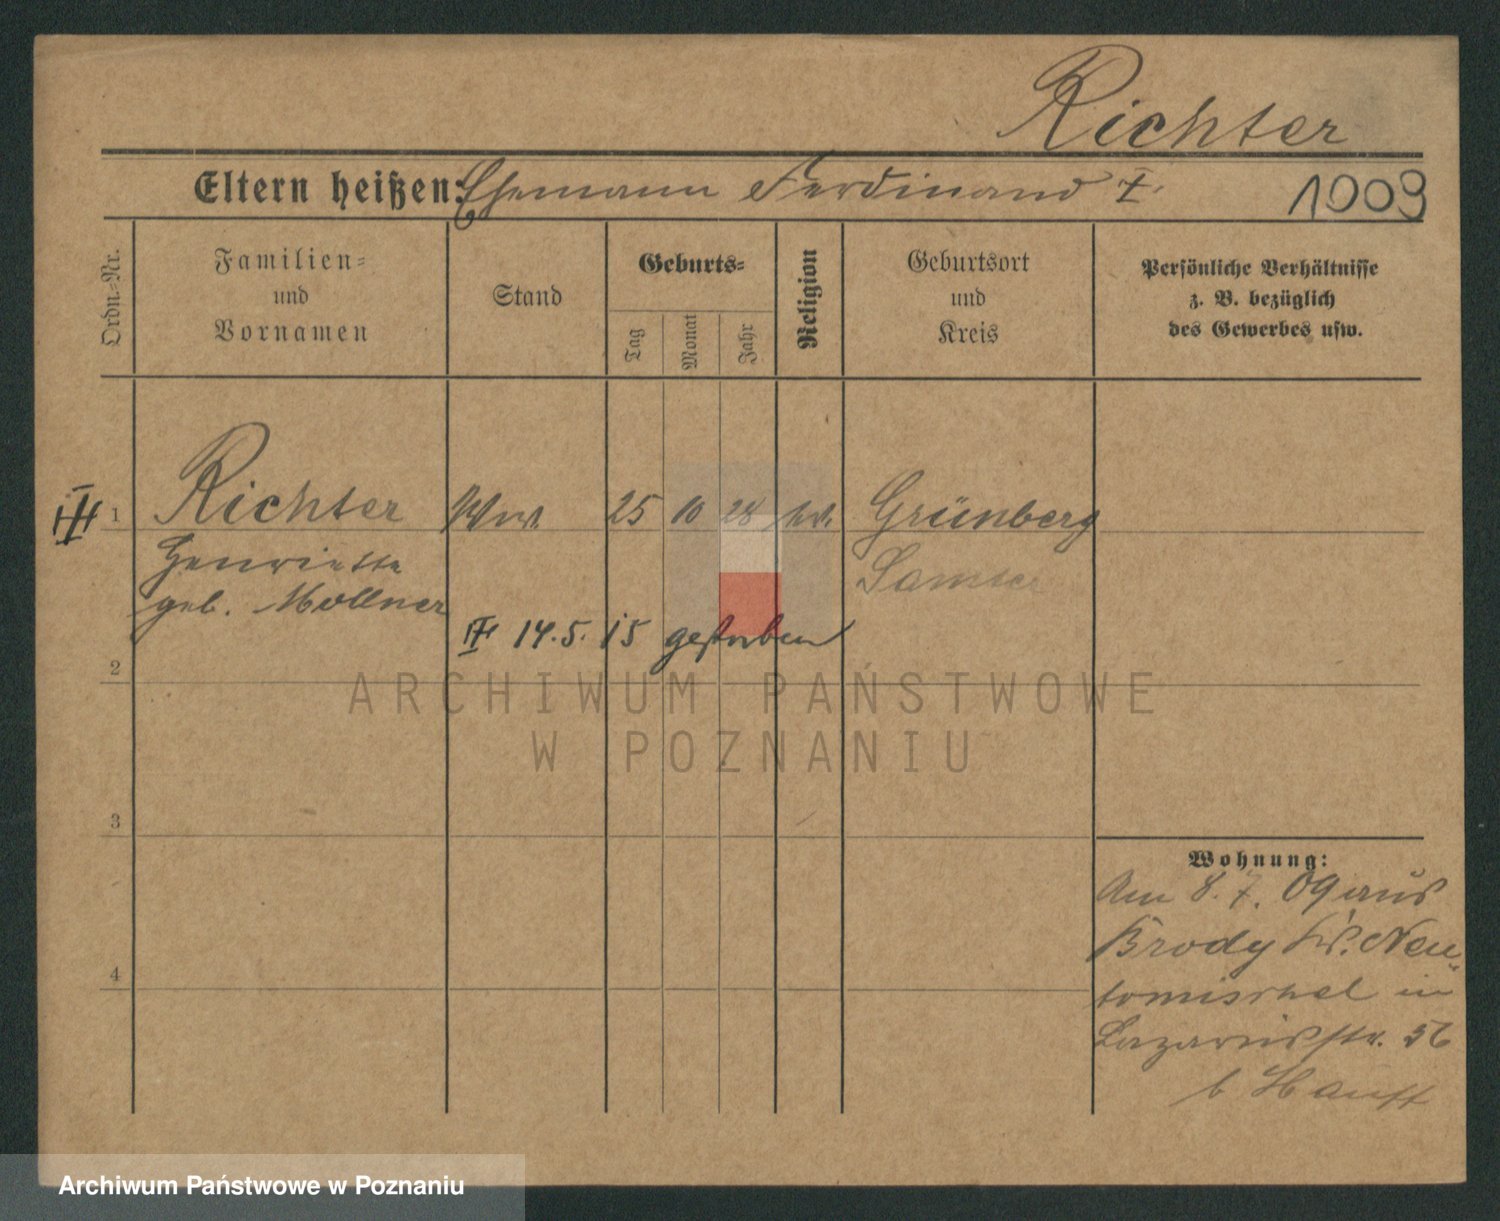 Richter
Eltern heißen: Ehemann Ferdinand †.
1909
Ordn.-Nr.
Familien-
und
Vornamen
Stand
Geburts-
Tag
Monat
Jahr
Religion
Geburtsort
und
Kreis
Persönliche Verhältnisse
z. B. bezüglich
des Gewerbes usw.
1 Richter Ww. 25 10 28 ev. Grünberg
Henriette Samter
geb. Mollner
14.5.15 gestorben
2
ARCHIWUM PAŃSTWOWE
W POZNANIU
3
4
Wohnung:
Am 8. 7. 09 aus
Brody Kr. Neu-
tomischel in
Lazarusstr. 56
b Hauff
Archiwum Państwowe w Poznaniu